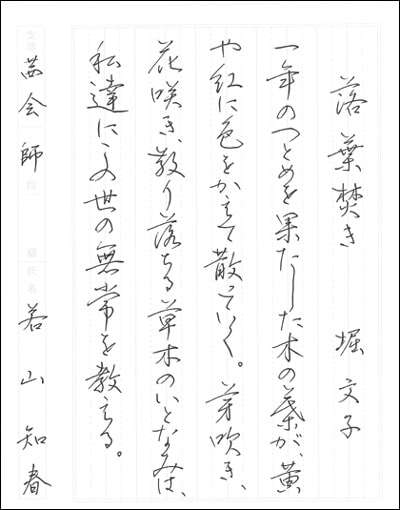 落葉焚き 堀文子
一年のつとめを果たした木の葉が、黄
や紅に色をかえて散っていく。芽吹き、
花咲き、散り落ちる草木のいとなみは、
私達にこの世の無常を教える。
支部 茜会 師 段 級 氏名 若山知春